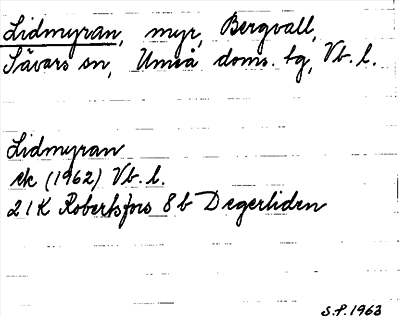 Lidmyran, myr, Bergvall,
Sävars sn, Umeå doms. tg, Vb. l.
Lidmyran
ek (1962) Vb. l.
21K Robertsfors 8 b Degerliden
S.F. 1963